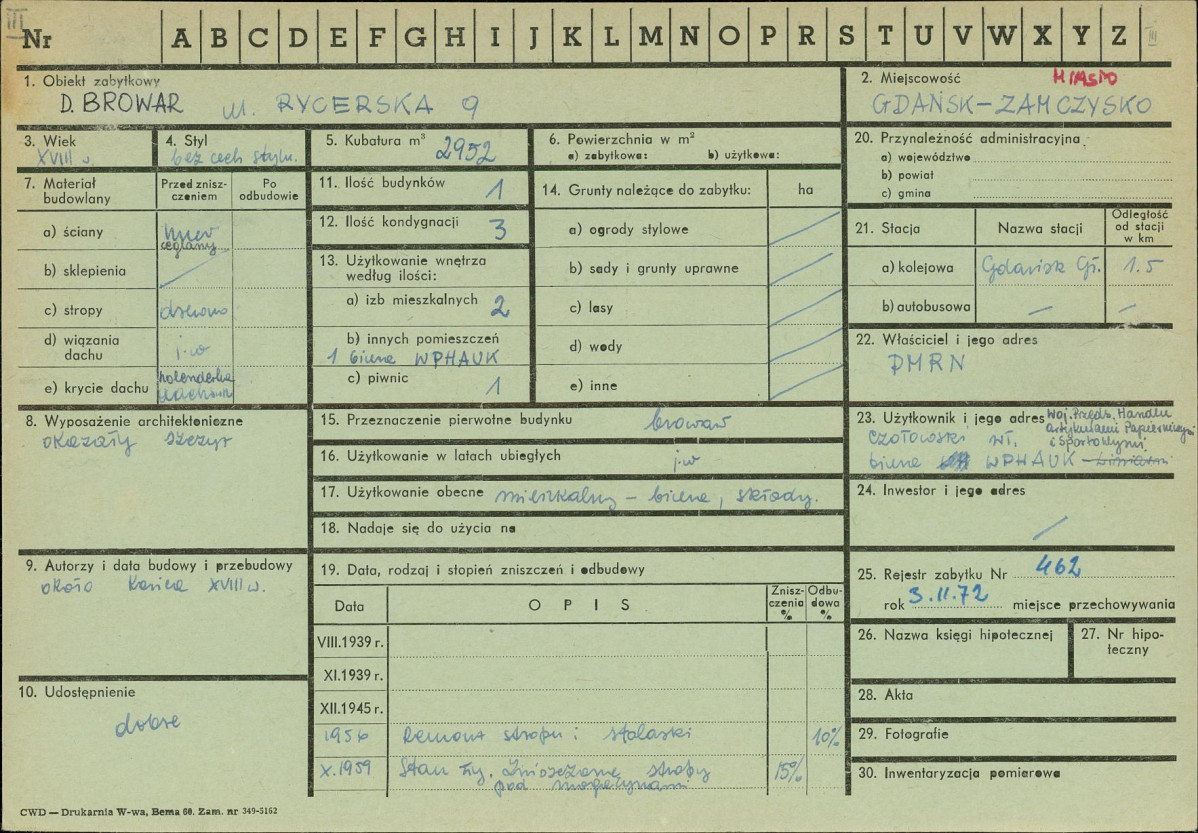 III
Nr A B C D E F G H I J K L M N O P R S T U V W X Y Z III
1. Obiekt zabytkowy
D. BROWAR ul. RYCERSKA 9
2. Miejscowość MIASTO
GDAŃSK-ZAMCZYSKO
3. Wiek
XVIII w.
4. Styl
bez cech styl.
5. Kubatura m³ 2952
6. Powierzchnia w m²
a) zabytkowa: b) użytkowa:
7. Materiał budowlany
Przed zniszczeniem
Po odbudowie
a) ściany mur ceglany
b) sklepienia
c) stropy drewno
d) wiązania dachu j.w
e) krycie dachu holenderka
8. Wyposażenie architektoniczne
okazały szczyt
9. Autorzy i data budowy i przebudowy
około końca XVIII w.
10. Udostępnienie
dobre
11. Ilość budynków 1
12. Ilość kondygnacji 3
13. Użytkowanie wnętrza według ilości:
a) izb mieszkalnych 2
b) innych pomieszczeń
1 biura WPHAUK
c) piwnic 1
14. Grunty należące do zabytku: ha
a) ogrody stylowe
b) sady i grunty uprawne
c) lasy
d) wody
e) inne
15. Przeznaczenie pierwotne budynku browar
16. Użytkowanie w latach ubiegłych j.w
17. Użytkowanie obecne mieszkalny – biura, składy.
18. Nadaje się do użycia na
19. Data, rodzaj i stopień zniszczeń i odbudowy
Data OPIS Zniszczenia % Odbudowa %
VIII.1939 r.
XI.1939 r.
XII.1945 r.
1956 Remont stropu i stolarki 10%
X.1959 Stan zły. Zniszczone stropy 15%
pod
20. Przynależność administracyjna
a) województwo
b) powiat
c) gmina
21. Stacja Nazwa stacji Odległość od stacji w km
a) kolejowa Gdańsk Gł. 1.5
b) autobusowa – –
22. Właściciel i jego adres
PMRN
23. Użytkownik i jego adres Woj. Przeds. Handlu
Artykułami Papierniczymi
i Sportowymi
Czołowski wł.
biura WPHAUK
24. Inwestor i jego adres
25. Rejestr zabytku Nr 462
rok 3.II.72 miejsce przechowywania
26. Nazwa księgi hipotecznej
27. Nr hipoteczny
28. Akta
29. Fotografie
30. Inwentaryzacja pomiarowa
CWD — Drukarnia W-wa, Bema 60. Zam. nr 349-5162